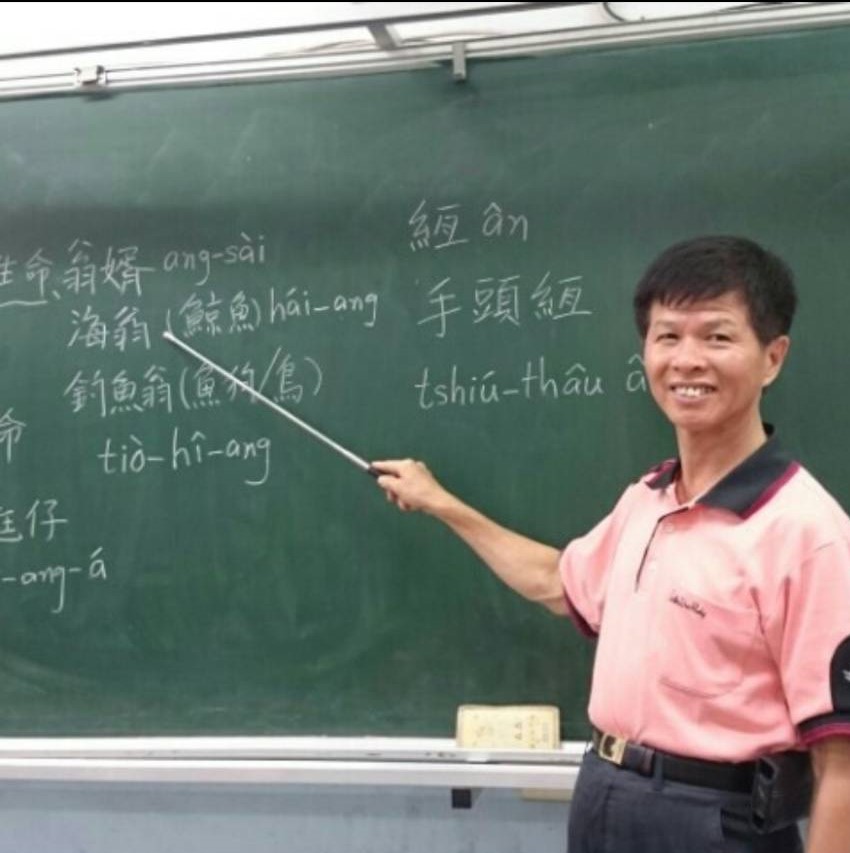 生命、翁婿 ang-sài
海翁(鯨魚)hái-ang
釣魚翁(魚狗/鳥)
命
tiò-hî-ang
仔
-ang-á
絚 ân
手頭絚
tshiú-thâu â